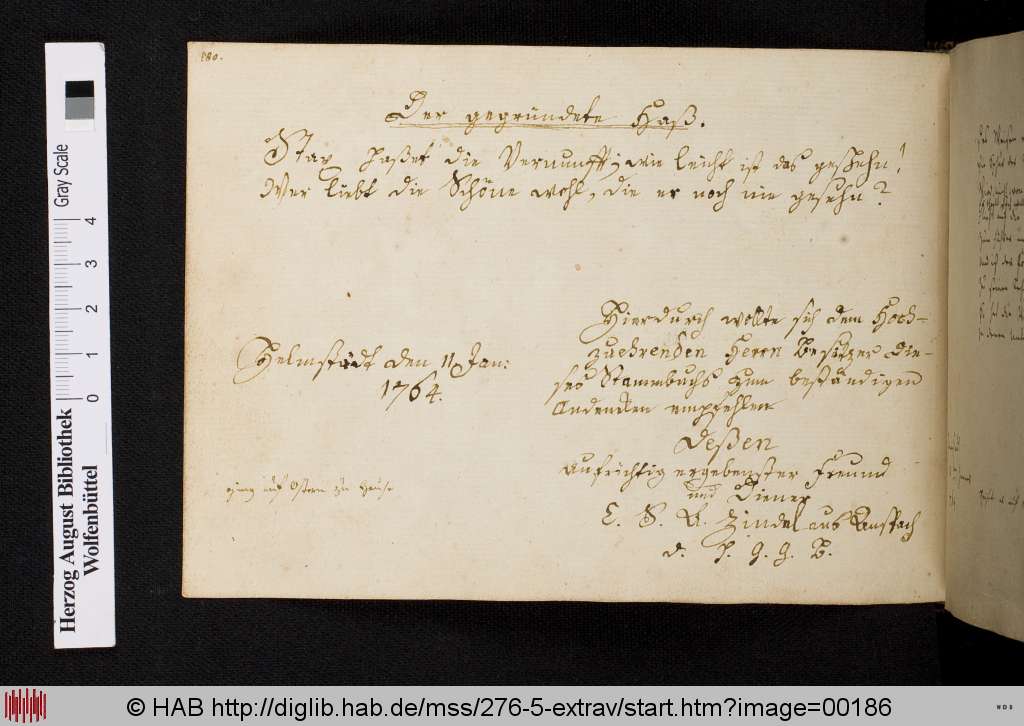 180.
Der gegründete Haß.
Stax haßet die Vernunfft; wie leicht ist das geschehn!
Wer liebt die Schöne wohl, die er noch nie gesehn?
Hierdurch wollte sich dem Hoch-
zuehrenden Herrn Besitzer die-
ses Stammbuchs zum beständigen
Andencken empfehlen
Deßen
aufrichtig ergebenster Freund
und Diener
E. S. K. Zindel aus Anspach
d. h. g. g. B.
Helmstädt den 11 Jan:
1764.
ging auf Ostern zu Hause
Herzog August Bibliothek
Wolfenbüttel
Gray Scale
0 1 2 3 4
© HAB http://diglib.hab.de/mss/276-5-extrav/start.htm?image=00186